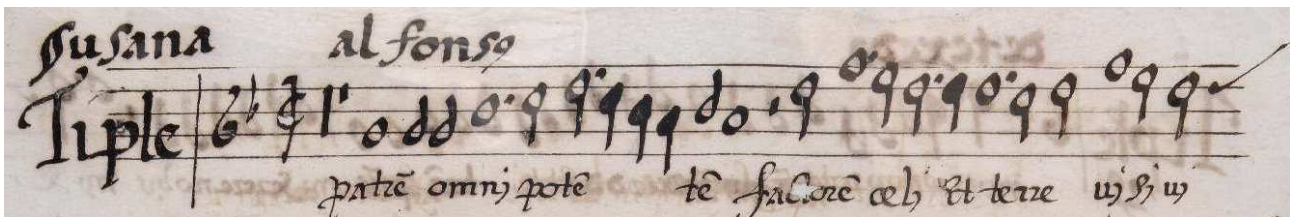 Susana alfonso
Tiple
patrē omnj potē tē factorē celj Et terre uj si uj